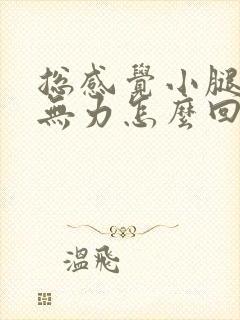 总感覺小腿
無力怎麼回
溫飛